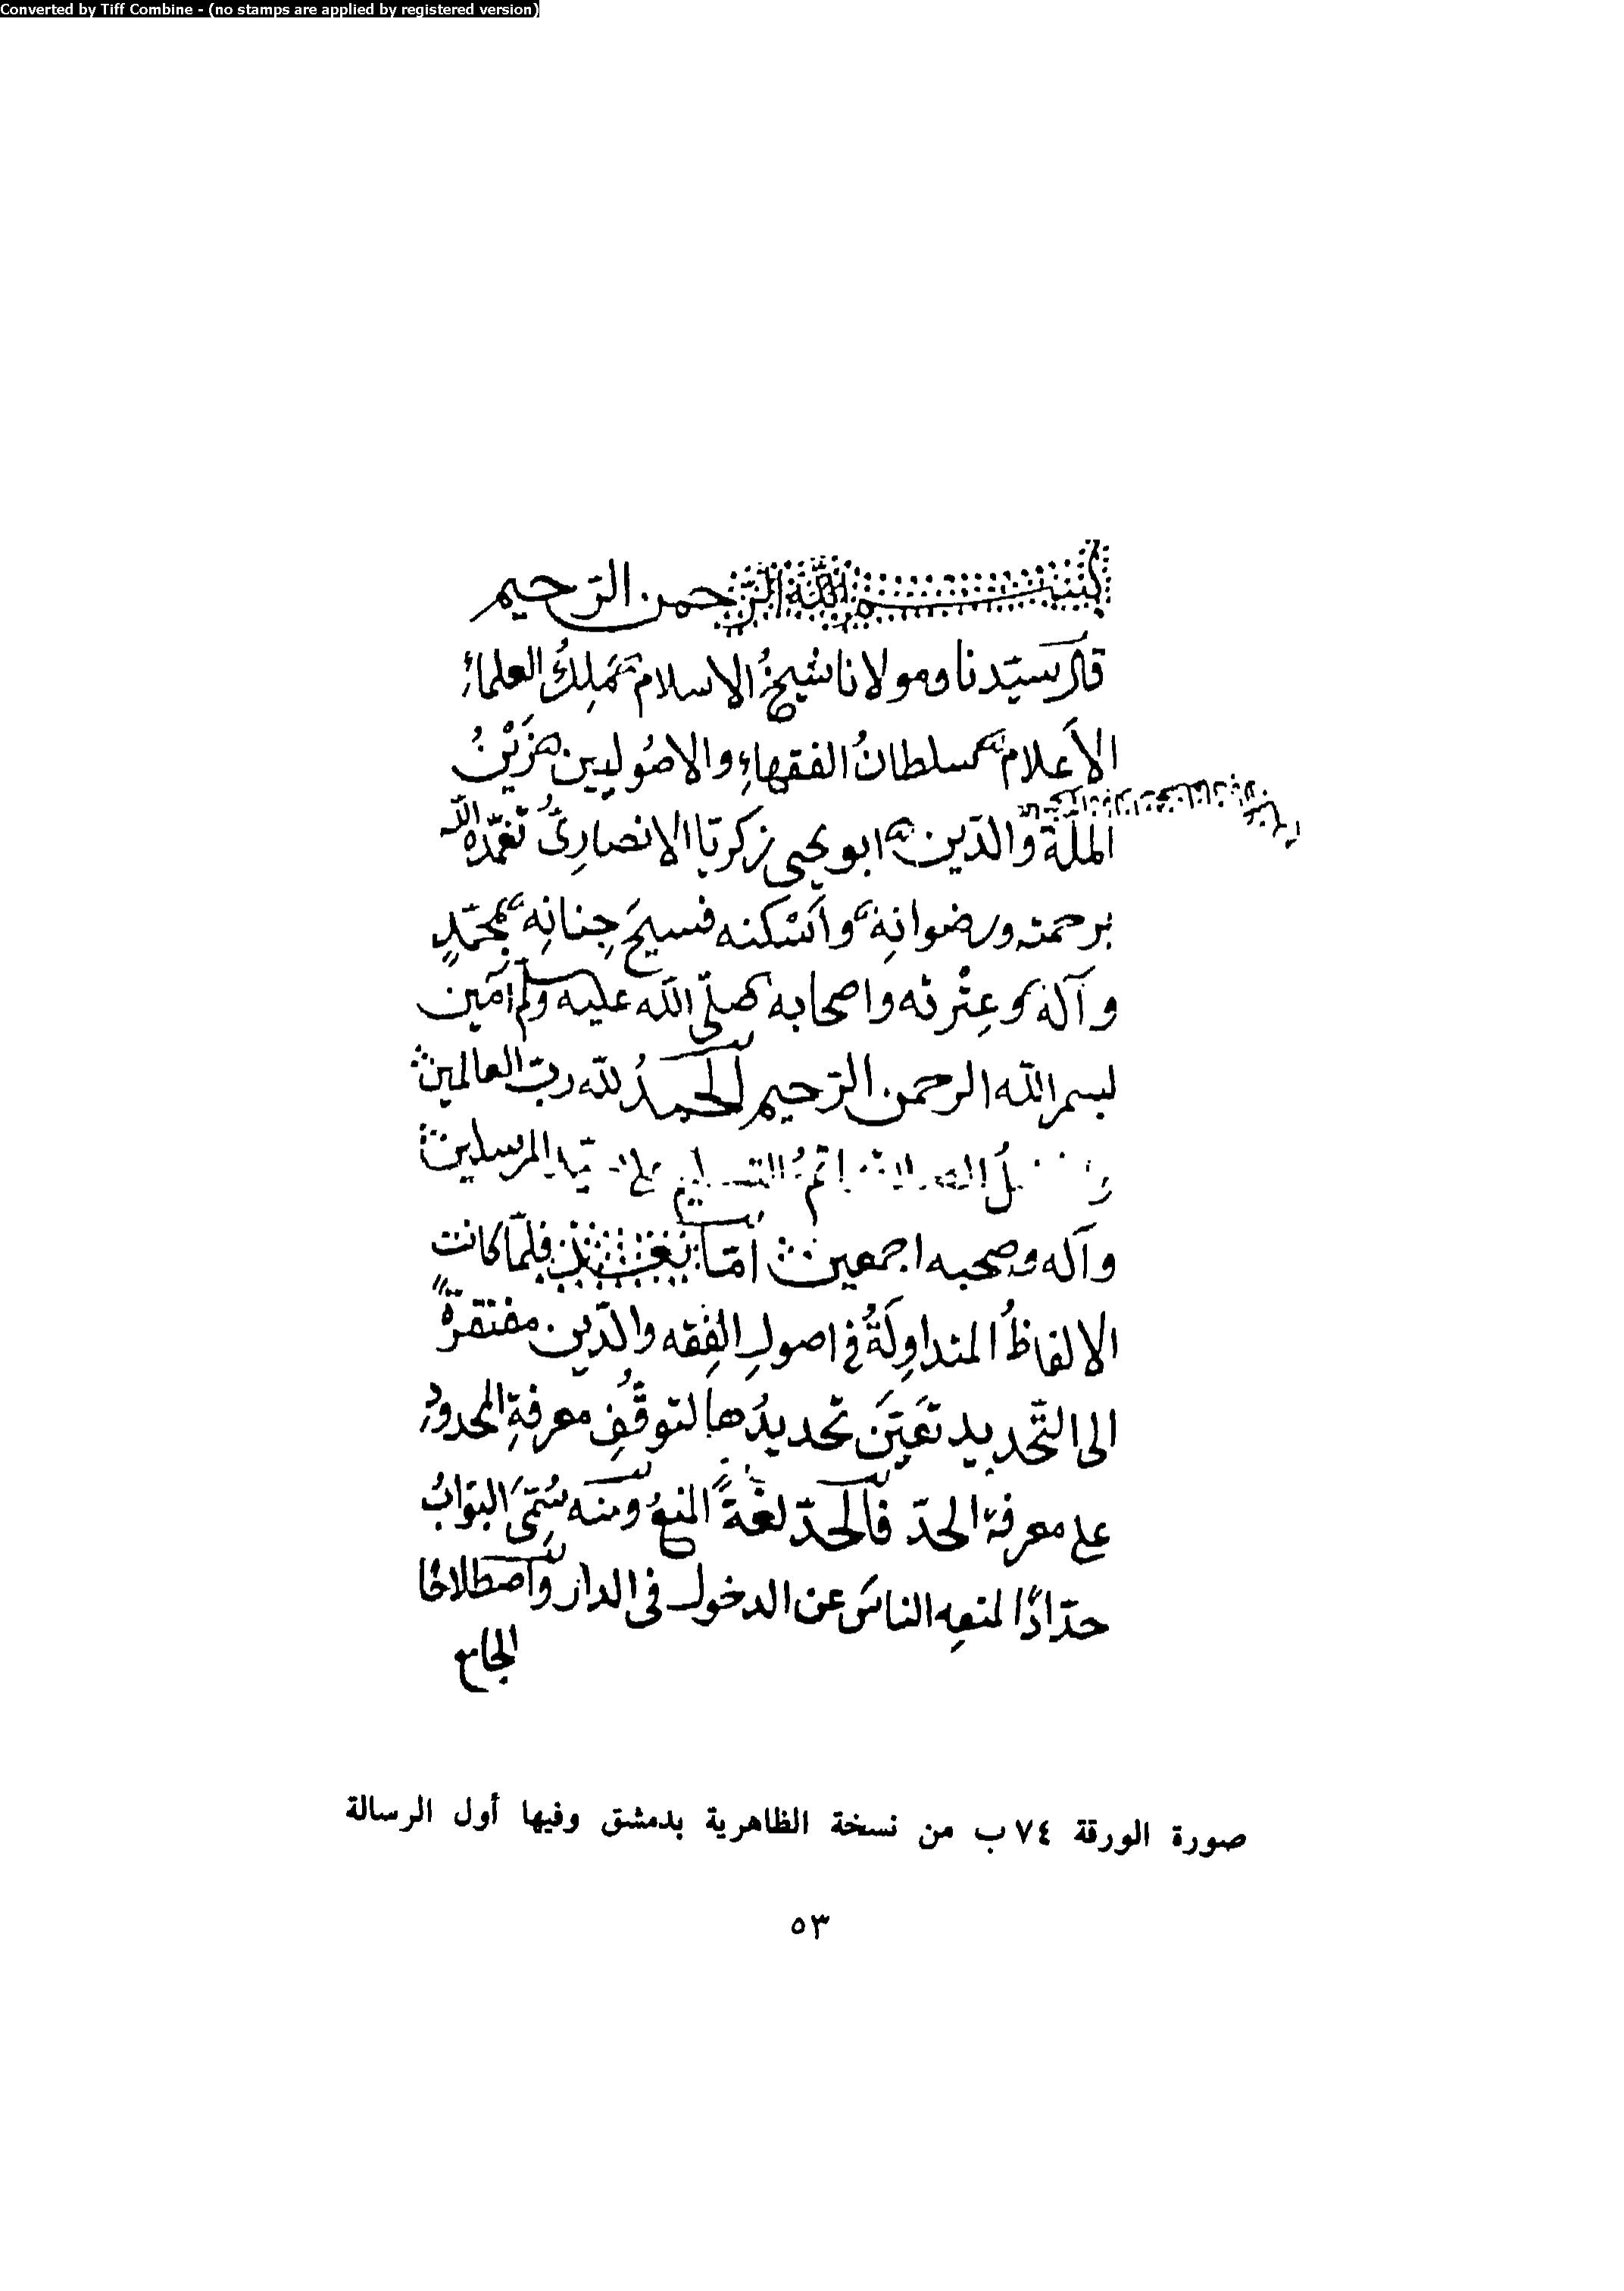 Converted by Tiff Combine - (no stamps are applied by registered version)
بسم الله الرّحمن الرّحيم
قال سيّدنا ومولانا شيخُ الاسلام مَلِكُ العلماءِ
الأعلام سلطانُ الفقهاءِ والاصُوليين زَيْنُ
الملّة والدّين ابو يحيى زكريّا الانصارىُّ تغمّده اللّه
برحمته ورضوانِه وأسْكنه فسيحَ جِنانِه بمحمّدٍ
وآله وعِتْرته واصحابه صلّى اللّه عليه وسلم آمين
بسم اللّه الرحمن الرّحيم الحمدُ للّه ربّ العالمين
الصلاة واتمُّ التسليم على المرسلين
وآله وصحبه اجمعين أمّا بعد فلمّا كانت
الالفاظُ المتداوِلَةُ فى اصولِ الفِقه والدّين مفتقرةً
الى التّحديد تعَيّنَ تحديدُها لتوقُّفِ معرفةِ المحدودِ
على معرفة الحدّ فالحدّ لغةً المنعُ ومنه سُمّىَ البوّابُ
حدّادًا لمنعِه الناسَ عن الدخول فى الدار واصطلاحًا
الجامع
صورة الورقة ٧٤ ب من نسخة الظاهرية بدمشق وفيها أول الرسالة
٥٣